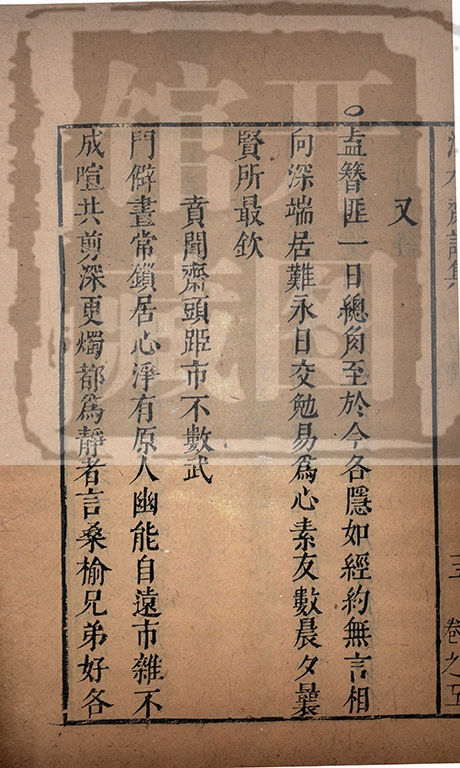 齋詩集 卷之五
又
○盍簪匪一日總角至於今各隱如經約無言相
向深端居難永日交勉易爲心素友數晨夕曩
賢所最欽
賁聞齋頭距市不數武
門僻晝常鎖居心淨有原人幽能自遠市雜不
成喧共剪深更燭都爲靜者言桑榆兄弟好各